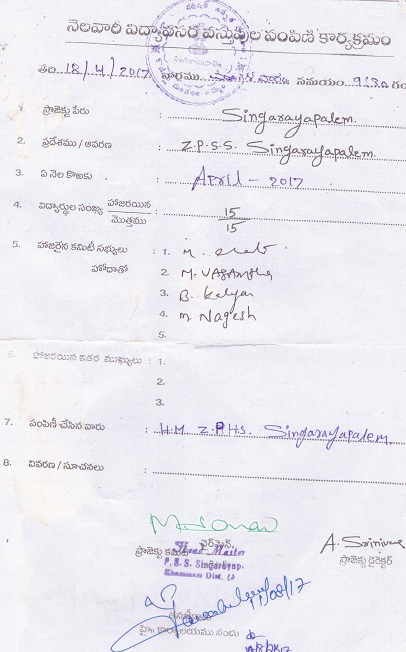 నెలవారీ విద్యాప్రసార వస్తువుల పంపిణీ కార్యక్రమం
తేది 18/4/2017 వారము మంగళ వారం సమయం 9:30 గం
1. ప్రాజెక్టు పేరు : Singarayapalem.
2. ప్రదేశము / ఆవరణ : Z.P.S.S. Singarayapalem.
3. ఏ నెల కొఱకు : April - 2017
4. విద్యార్థుల సంఖ్య హాజరయిన : 15
మొత్తము 15
5. హాజరైన కమిటీ సభ్యులు : 1. M.
హోదాతో 2. M.
3. B. Kalyan
4. M. Nagesh
5.
6. హాజరయిన ఇతర ముఖ్యులు : 1.
2.
3.
7. పంపిణీ చేసిన వారు : H.M. Z.P.H.S. Singarayapalem.
8. వివరణ / సూచనలు :
ఛైర్మెన్,
ప్రాజెక్టు కమిటీ
Head Master
P.S.S. Singaryap-
Khammam Dist.
A. Srinivas
ప్రాజెక్టు డైరెక్టర్